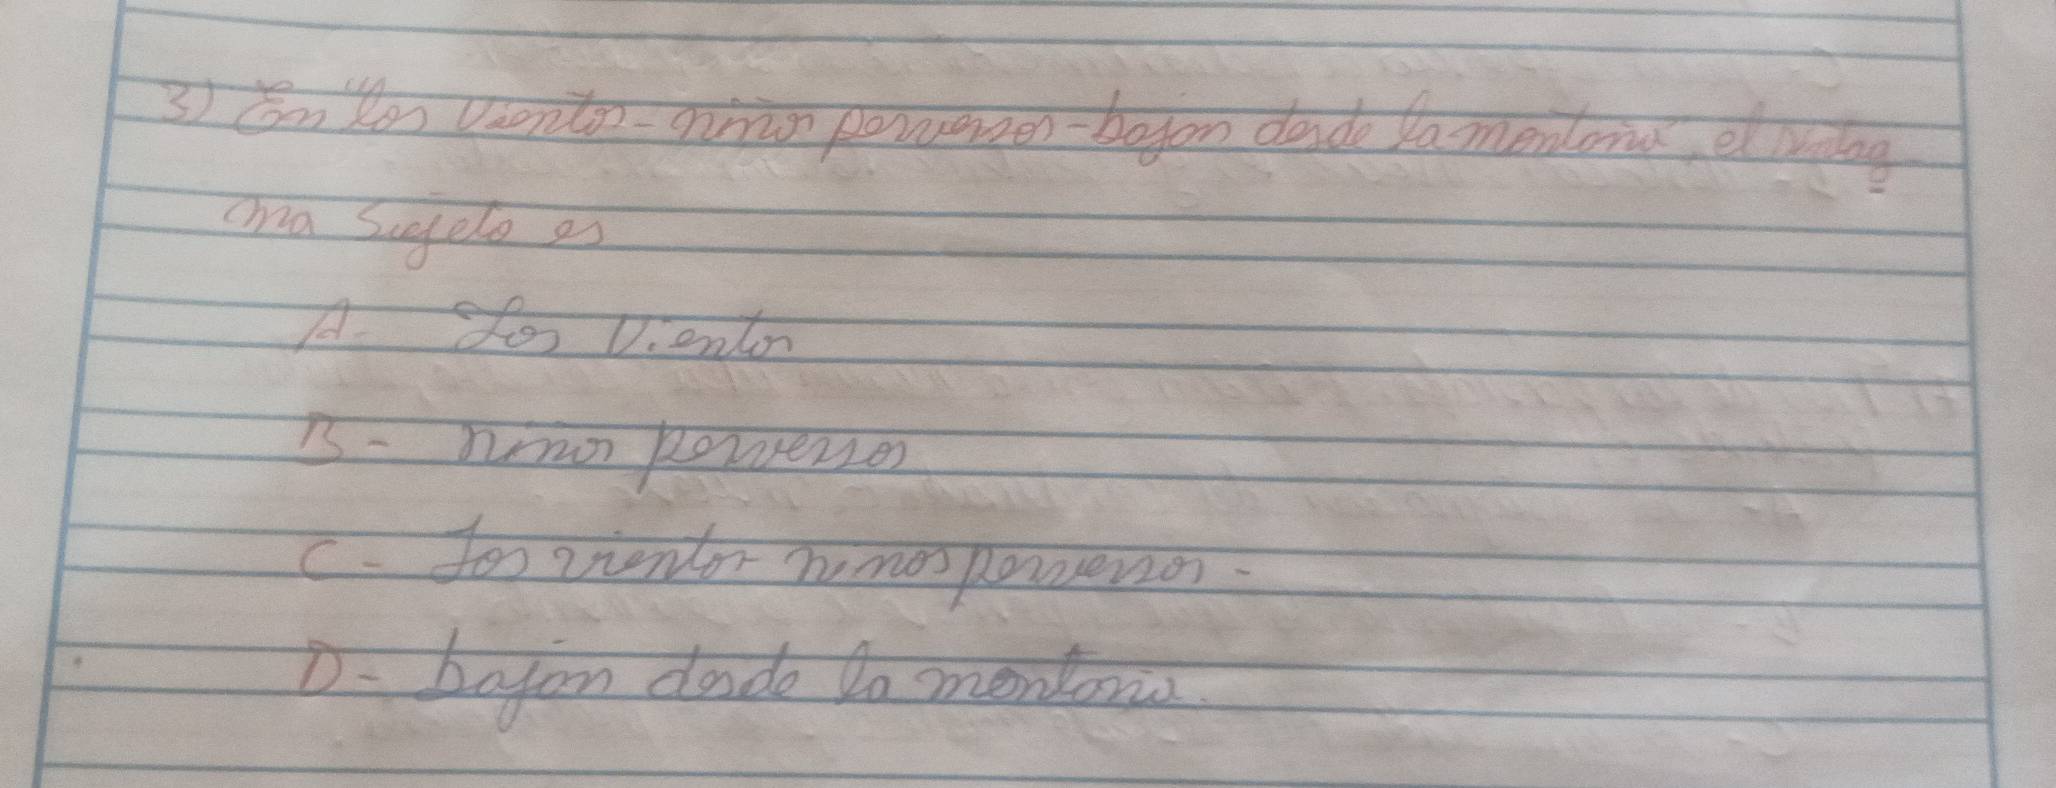 3) En "los vientos - niños perversos - bajan desde la montaña, el sintag
ma Sujeto es
A- Los Vientos
B- niños perversos
C- Los vientos niños perversos -
D- bajan desde la montaña.